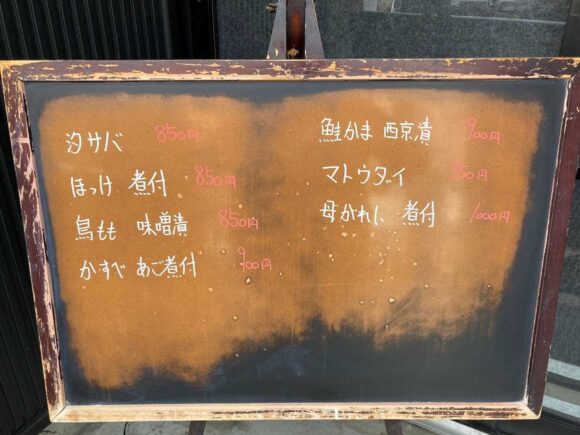 汐サバ 850円
ほっけ 煮付 850円
鳥もも 味噌漬 850円
かすべ あご煮付 900円
鮭かま 西京漬 900円
マトウダイ 850円
母かれい 煮付 1000円